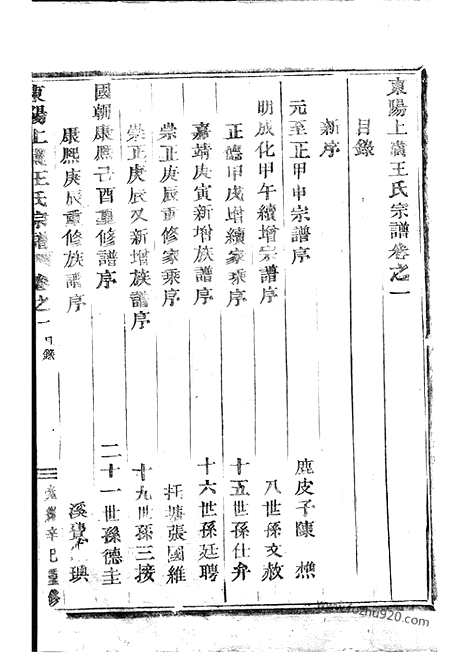 東陽上璜王氏宗譜卷之一
目錄
新序
元至正甲申宗譜序 鹿皮子陳樵
明成化甲午續增宗譜序 八世孫文赦
正德甲戌增續家乘序 十五世孫仕弁
嘉靖庚寅新增族譜序 十六世孫廷聘
崇正庚辰重修家乘序 托塘張國維
崇正庚辰又新增族譜序 十九世孫三接
國朝康熙己酉重修譜序 二十一世孫德圭
康熙庚辰重修族譜序 溪 璵
東陽上璜王氏宗譜 卷之一 目錄
辛巳重修